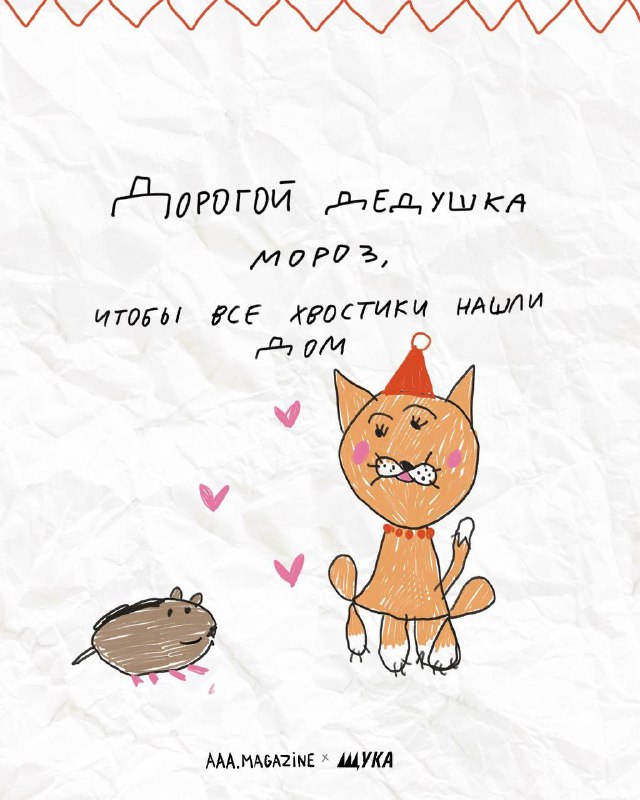 Дорогой дедушка
мороз,
итобы все хвостики нашли
дом
AAA.MAGAZINE × ЩУКА